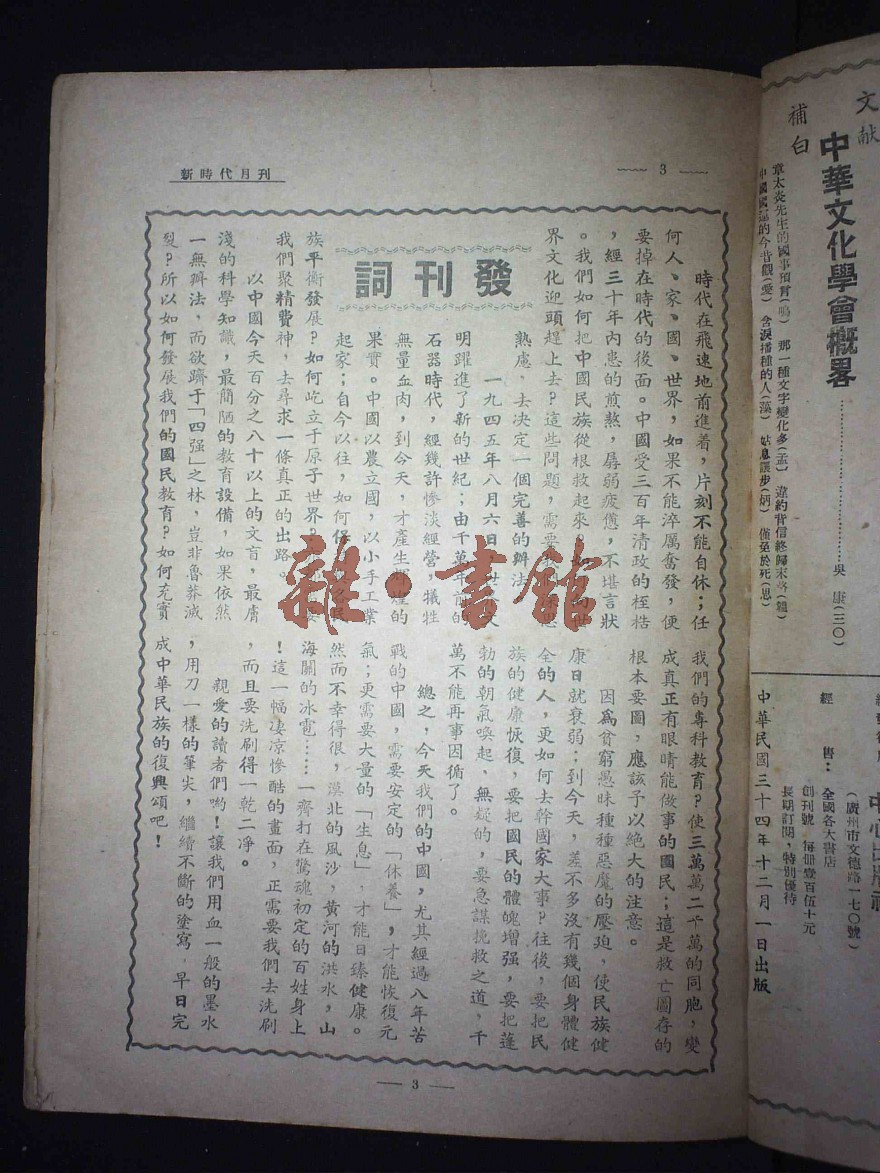 新時代月刊
3
發刊詞
時代在飛速地前進着，片刻不能自休；任
何人、家、國、世界，如果不能淬厲奮發，便
要掉在時代的後面。中國受三百年清政的桎梏
，經三十年內患的煎熬，孱弱疲憊，不堪言狀
。我們如何把中國民族從根救起來？如向世
界文化迎頭趕上去？這些問題，需要我深思
熟慮，去決定一個完善的辦法
一九四五年八月六日
明躍進了新的世紀；由千萬年前的
石器時代，經幾許慘淡經營，犧牲
無量血肉，到今天，才產生輝煌的
果實。中國以農立國，以小手工業
起家；自今以往，如何保各民
族平衡發展？如何屹立于原子世界？要
我們聚精費神，去尋求一條真正的出路。
以中國今天百分之八十以上的文盲，最膚
淺的科學知識，最簡陋的教育設備，如果依然
一無辦法，而欲躋于「四强」之林，豈非魯莽滅
裂？所以如何發展我們的國民教育？如何充實
我們的專科教育？使三萬萬二千萬的同胞，變
成真正有眼睛能做事的國民；這是救亡圖存的
根本要圖，應該予以絕大的注意。
因爲貧窮愚昧種種惡魔的壓廹，使民族健
康日就衰弱；到今天，差不多沒有幾個身體健
全的人，更如何去幹國家大事？往後，要把民
族的健康恢復，要把國民的體魄增强，要把蓬
勃的朝氣喚起，無疑的，要急謀挽救之道，千
萬不能再事因循了。
總之，今天我們的中國，尤其經過八年苦
戰的中國，需要安定的「休養」，才能恢復元
氣；更需要大量的「生息」，才能日臻健康。
然而不幸得很，漠北的風沙，黃河的洪水，山
海關的冰雹……一齊打在驚魂初定的百姓身上
！這一幅凄凉慘酷的畫面，正需要我們去洗刷
，而且要洗刷得一乾二凈。
親愛的讀者們喲！讓我們用血一般的墨水
，用刀一樣的筆尖，繼續不斷的塗寫，早日完
成中華民族的復興頌吧！
— 3 —
文献
中華文化學會概畧……吳康(三〇)
補白
章太炎先生的國事預言(鳴) 那一種文字變化多(孟) 違約背信終歸末路(鏡)
中國國運的今昔觀(愛) 含淚播種的人(藻) 姑息讓步(炳) 僅免於死(思)
(廣州市文德路一七〇號)
經售：全國各大書店
創刊號 每冊壹百伍十元
長期訂閱，特別優待
中華民國三十四年十二月一日出版
雜·書館